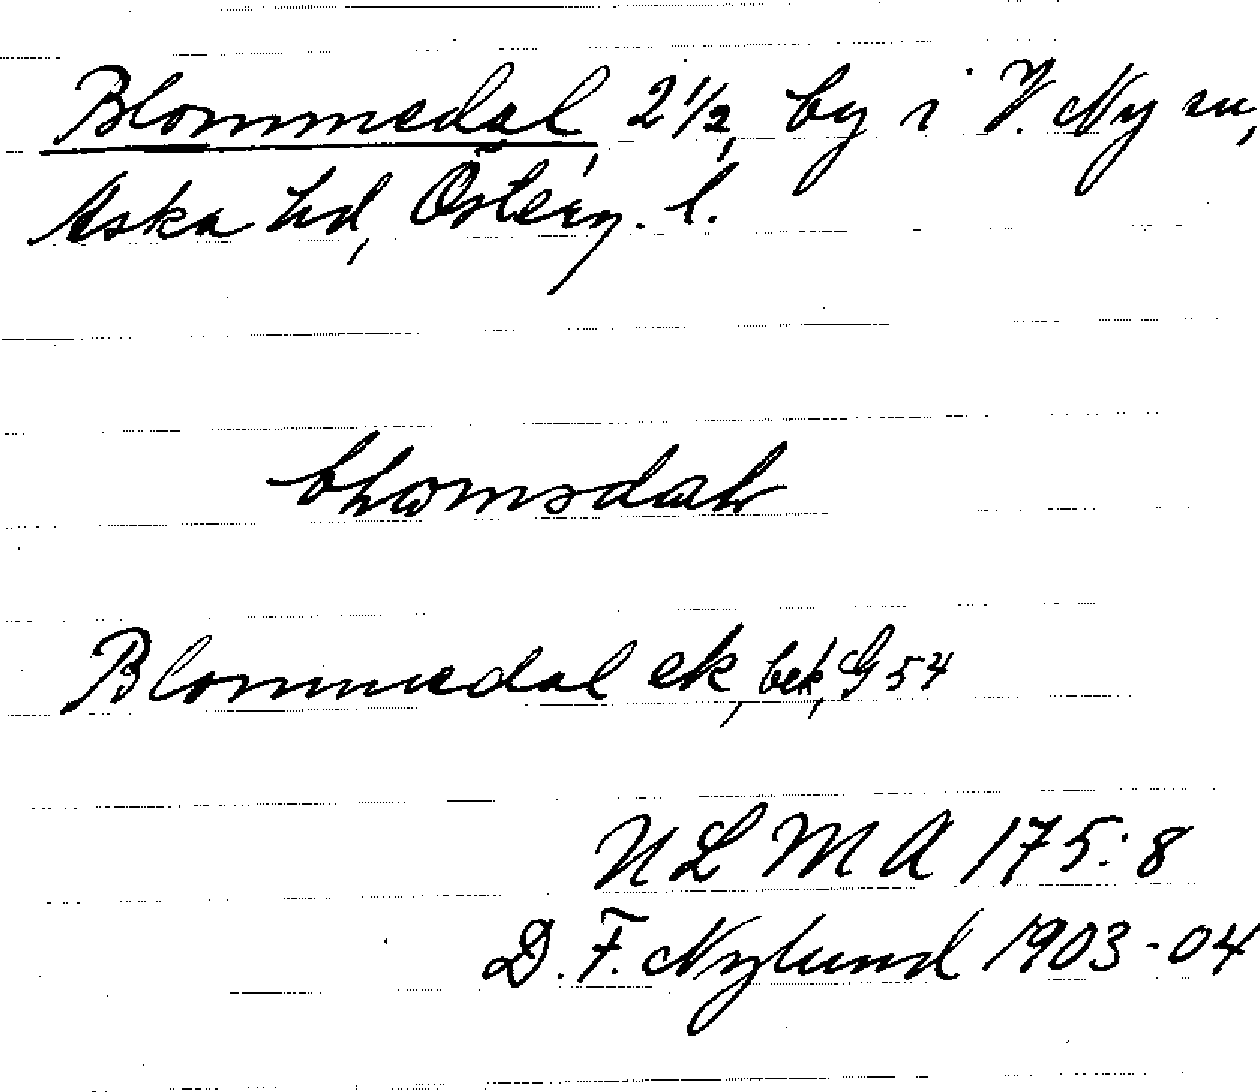 Blommedal, 2 1/2, by i V. Ny sn,
Aska hd, Österg. l.
Blommedal ek, bek, G 54
N L M A 175:8
D. F. Nylund 1903-04